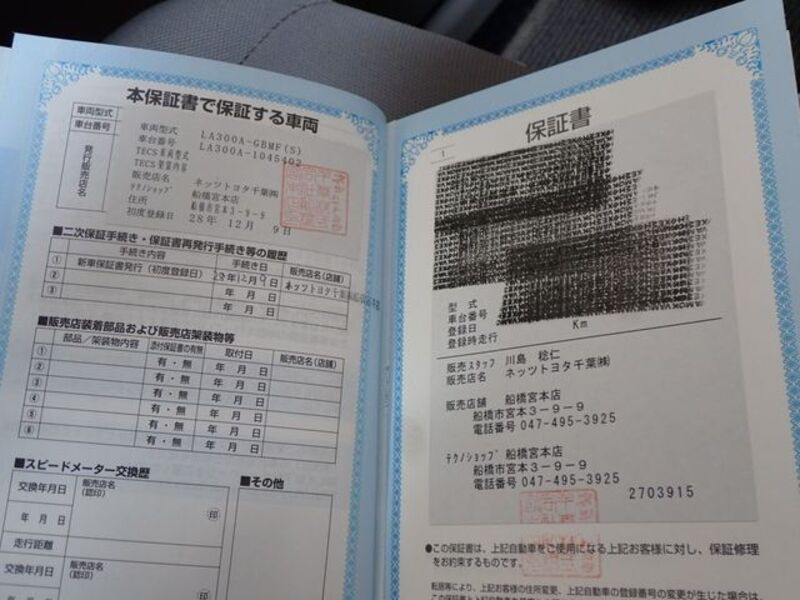 本保証書で保証する車両
車両型式
車台番号
発行販売店名
車両型式 LA300A-GBMF(S)
車台番号 LA300A-1045402
TECS車両型式
TECS架装内容
販売店名 ネッツトヨタ千葉㈱
テクノショップ 船橋宮本店
住所 船橋市宮本3-9-9
初度登録日 28年 12月 9日
■二次保証手続き・保証書再発行手続き等の履歴
手続き内容 手続き日 販売店名(店舗)
① 新車保証書発行(初度登録日) 28年12月9日 ネッツトヨタ千葉
② 年 月 日
③ 年 月 日
■販売店装着部品および販売店架装物等
部品/架装物内容 添付保証書の有無 取付日 販売店名(店舗)
① 有・無 年 月 日
② 有・無 年 月 日
③ 有・無 年 月 日
④ 有・無 年 月 日
⑤ 有・無 年 月 日
⑥ 有・無 年 月 日
■スピードメーター交換歴
交換年月日 販売店名
(認印)
年 月 日 ㊞
走行距離
交換年月日 販売店名
(認印)
年 月 日 ㊞
■その他
保証書
1
型 式
車台番号
登録日
登録時走行 Km
販売スタッフ 川島 稔仁
販売店名 ネッツトヨタ千葉㈱
販売店舗 船橋宮本店
船橋市宮本3-9-9
電話番号 047-495-3925
テクノショップ 船橋宮本店
船橋市宮本3-9-9
電話番号 047-495-3925
2703915
●この保証書は、上記自動車をご使用になる上記お客様に対し、保証修理
をお約束するものです。
転居等により、上記お客様の住所変更、上記自動車の登録番号の変更が生じた場合は、